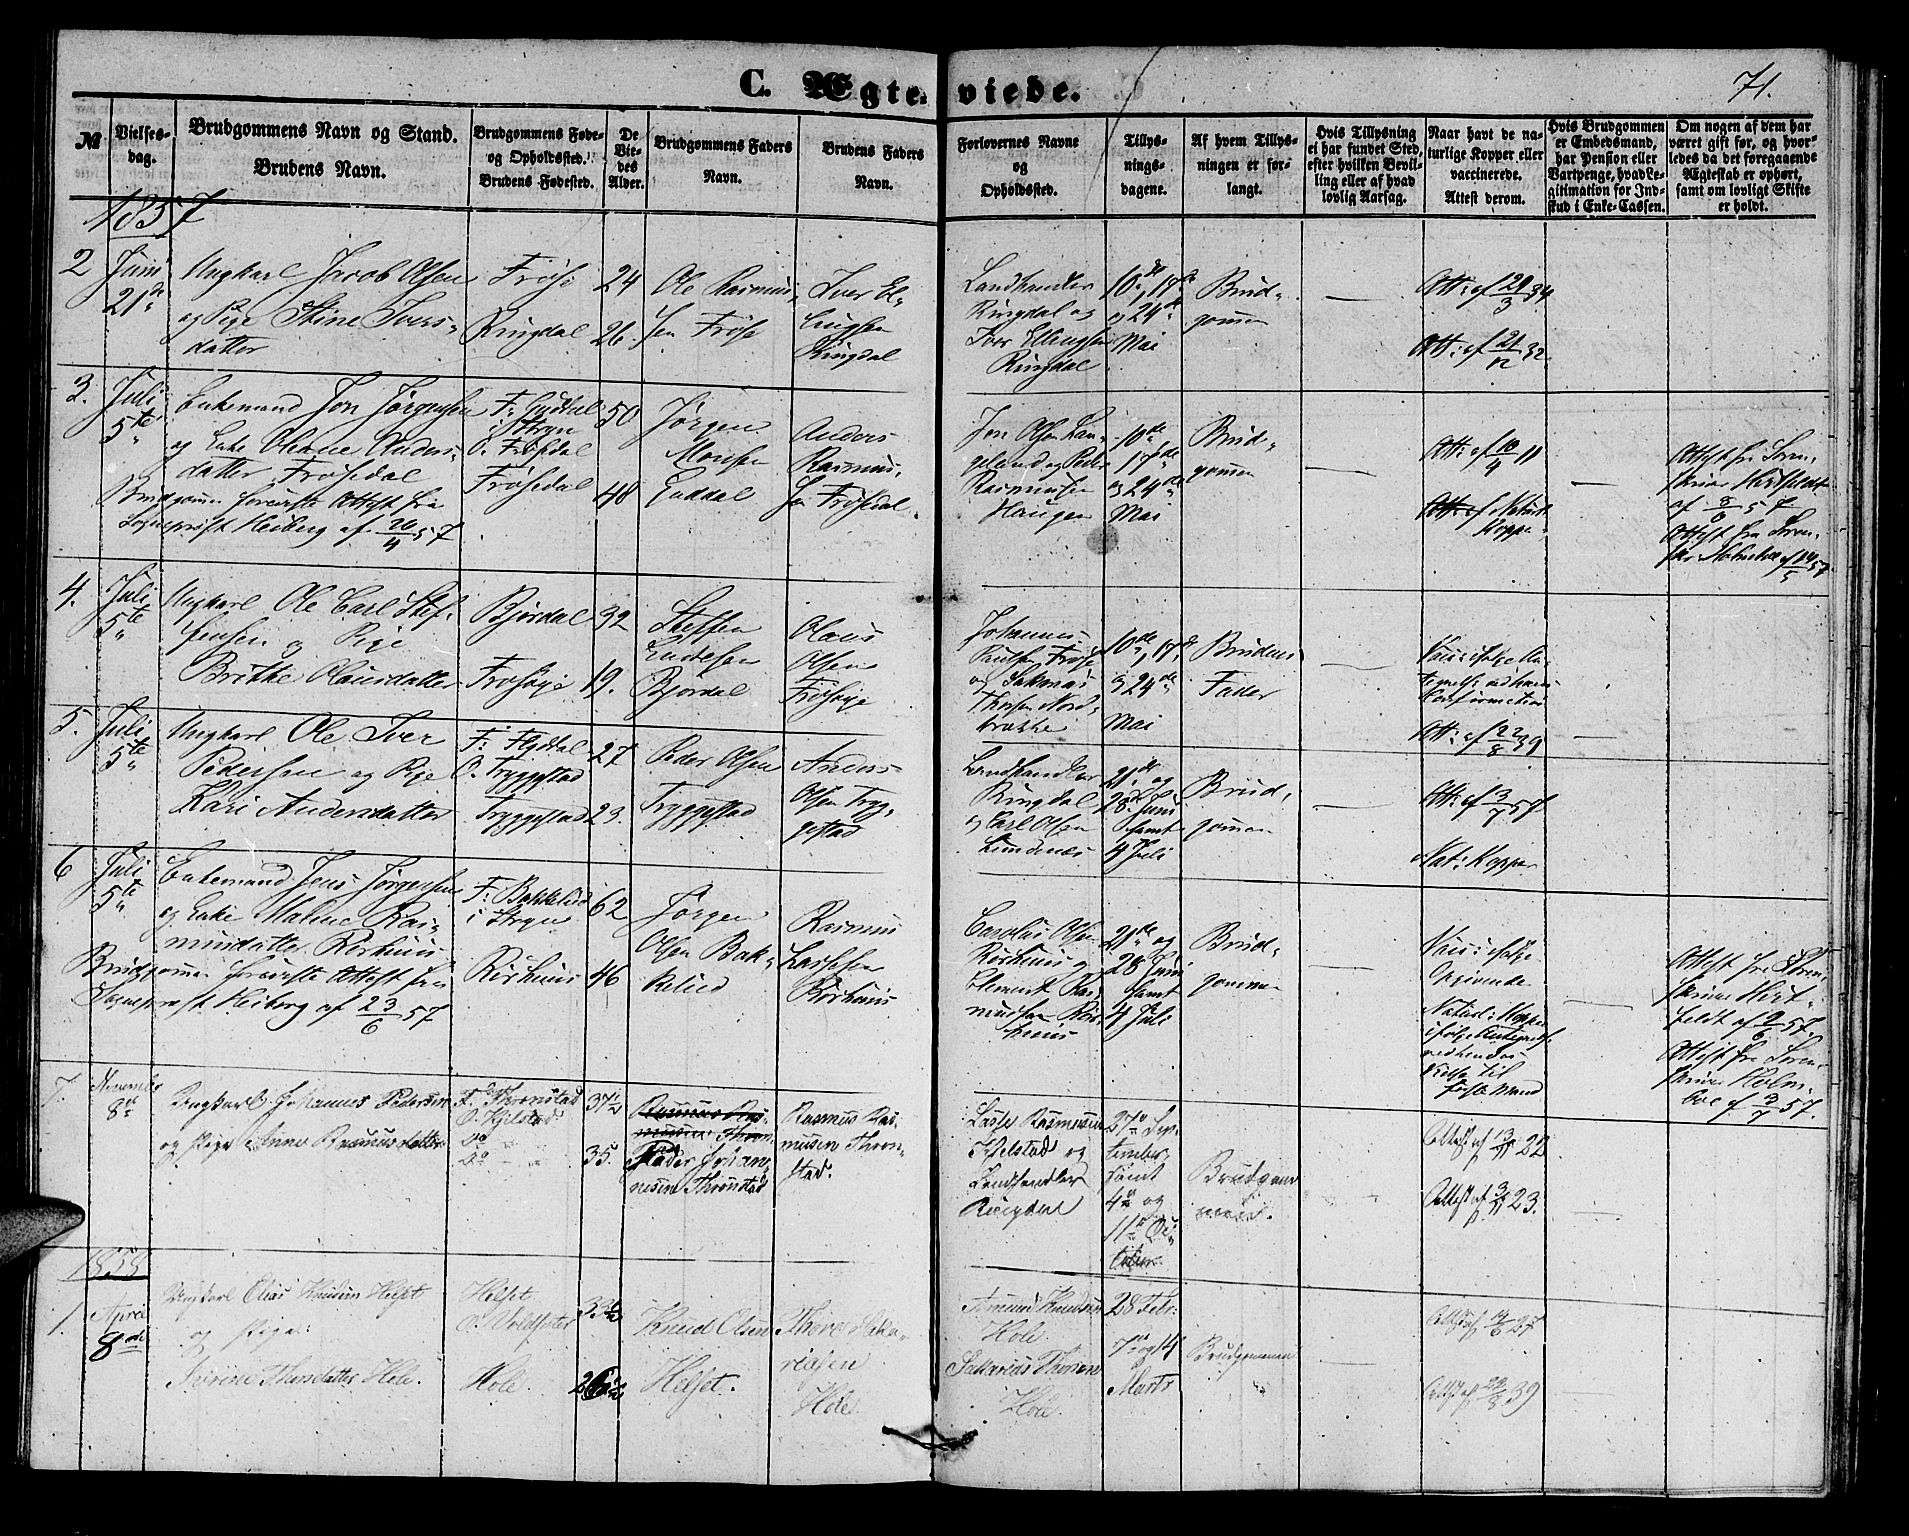 C. Ægte-viede.
71.
№
Vielses-
dag.
Brudgommens Navn og Stand.
Brudens Navn.
Brudgommens Føde-
og Opholdssted.
Brudens Fødested.
De
Vie-
des
Alder.
Brudgommens Faders
Navn.
Brudens Faders
Navn.
Forlovernes Navne
og
Opholdssted.
Tillys-
nings-
dagene.
Af hvem Tillys-
ningen er for-
langt.
Hvis Tillysning
ei har fundet Sted,
efter hvilken Bevil-
ling eller af hvad
lovlig Aarsag.
Naar havt de na-
turlige Kopper eller
vaccinerede.
Attest derom.
Hvis Brudgommen
er Embedsmand,
har Pension eller
Vartpenge, hvad Le-
gitimation for Ind-
skud i Enke-Cassen.
Om nogen af dem har
været gift før, og hvor-
ledes da det foregaaende
Ægteskab er ophørt,
samt om lovligt Skifte
er holdt.
1857
2
Juni
21de
Ungkarl Jacob Olsen
og Pige Stine Ivers-
datter
Frøse
Ringdal
24
26.
Ole Rasmus-
sen Frøse
Iver El-
lingsen
Ringdal
Landhandler
Ringdal og
Iver Ellingsen
Ringdal
10de, 17de
og 24de
Mai
Brud-
gomen
Att: af 29/3 34
Att: af 21/12 32.
3.
Juli
5te
Enkemand Jon Jørgensen
og Enke Oleane Anders-
datter Frøsedal
Brudgomen foreviste Attest fra
Sogneprest Heiberg af 26/4 57
i Stryn
O. Frøsdal
Frøsedal
50
48
Jørgen
Monsen
Anders
Rasmus-
sen Frøsdal.
Jon Olsen Lan-
geland og Peder
Rasmussen
Haugen
10de
17de
og 24de
Mai
Brud-
gomen
Att: af 10/4 11
Att: af Naturl:
Kopper
Attest fra Soren-
skriver Hertfeldt
Attest fra Soren-
4.
Juli
5te
Ungkarl Ole Carl Stef-
fensen og Pige
Brithe Olausdatter
Bjørdal
Frøsøje
32
19.
Steffen
Bjørdal
Olaus
Olsen
Frøsøje
Johannes
og Sakarias
10de, 17de
og 24de
Mai
Brudens
Fader
Confirmation
Att: af 22/8 39
5.
Juli
5te
Ungkarl Ole Iver
Pedersen og Pige
Kari Andersdatter
F: Flydtal
O. Tryggestad
Tryggestad
27
23.
Peder Olsen
Tryggestad
Anders
Olsen Tryg-
gestad
Landhandler
Ringdal
og Carl Olsen
21de og
28de Juni
samt
4 Juli
Brud-
gomen
Att: af 3/7 57
Nat: Kopper
6
Juli
5te
Enkemand Jens Jørgensen
og Enke Maline Ras-
musdatter Rørhuus
Brudgomen foreviste Attest fra
Sogneprest Heiberg af 23/6 57
F: Bakkelid
i Stryn
Rørhuus
62
46
Jørgen
Olsen Bak-
kelid
Rasmus
Lassesen
Rørhuus
Carolus Olsen
Rørhuus og
Clement Ras-
mussen Rør-
huus
21de og
28 Juni
samt
4 Juli
Brud-
gommen
Opgivende
Naturl: Kopper
første Mand
Attest fra Soren-
skriver Hert-
feldt af 2/6 57.
Attest fra Soren-
skriver Holm-
boe af 3/7 57.
7.
November
8de
Ungkarl Johannes Pedersen
og Pige Anne Rasmusdatter
F. Thronstad
O. Kjelstad
do
do
37½
35.
Rasmus Ras-
mussen Thron-
Peder Johan-
nesen Thronstad
Rasmus Ras-
mussen Thron-
stad.
Lasse Rasmussen
Kjelstad og
Landhandler
Ringdal
27de Sep-
tember
samt
4de og
11de Oc-
tober
Brudgom-
men.
Attest af 13/11 22
Attest af 3/11 23.
1858
1.
April
8de
Ungkarl Elias Knudsen Helset
og Pige:
Helset
Hole.
33½
Knud Olsen
Helset.
Thore Saka-
riasen
Hole.
Amund Knudsen
Hole.
Sakarias Thoresen
Hole.
28 Febr.
7de og 14
Marts
Brudgommen
Attest af 14/6 27
Attest af 22/8 39